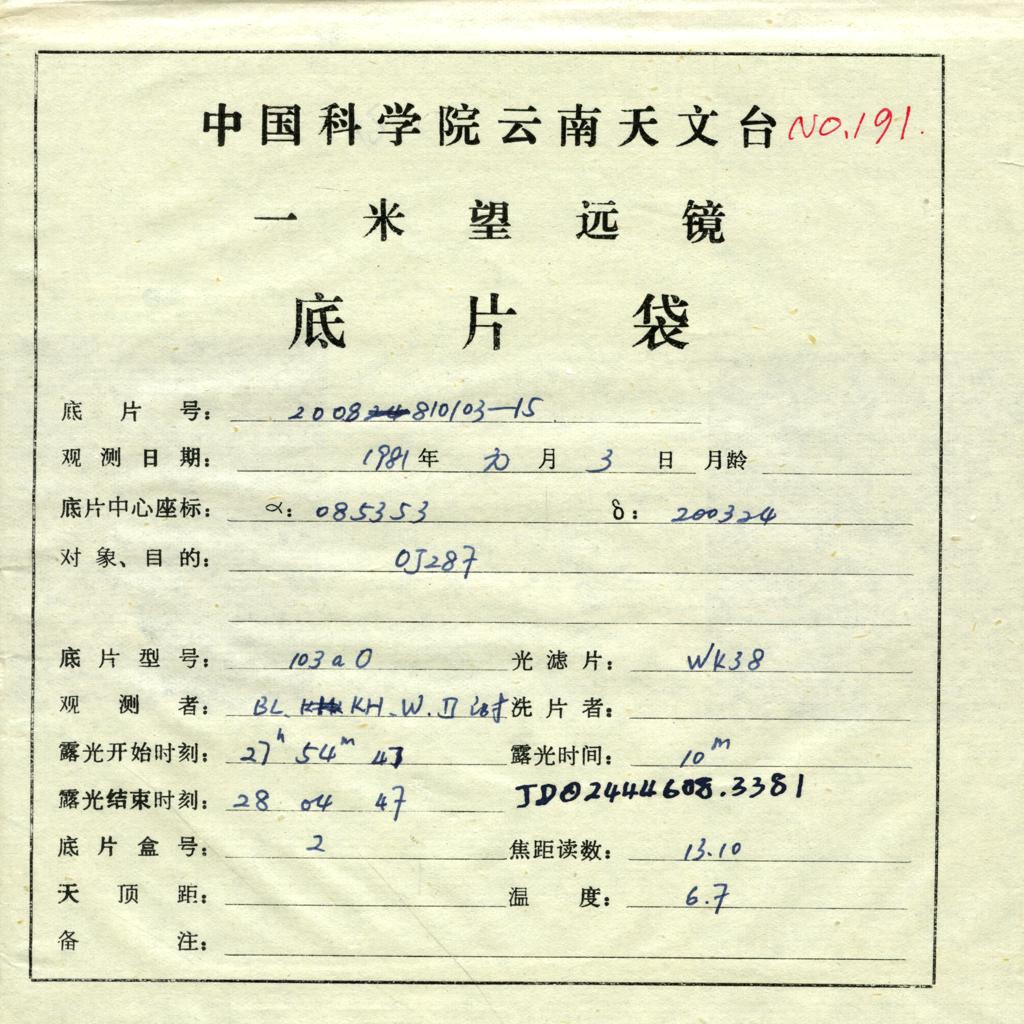 中国科学院云南天文台 NO.191.
一米望远镜
底片袋
底片号: 200824810103—15
观测日期: 1981年 元月 3日 月龄
底片中心座标: α: 085353 δ: 200324
对象、目的: OJ287
底片型号: 103aO 光滤片: WK38
观测者: BL. KH. W. 洗片者:
露光开始时刻: 27h 54m 47 露光时间: 10m
露光结束时刻: 28 04 47 JD⊙2444608.3381
底片盒号: 2 焦距读数: 13.10
天顶距: 温度: 6.7
备注: